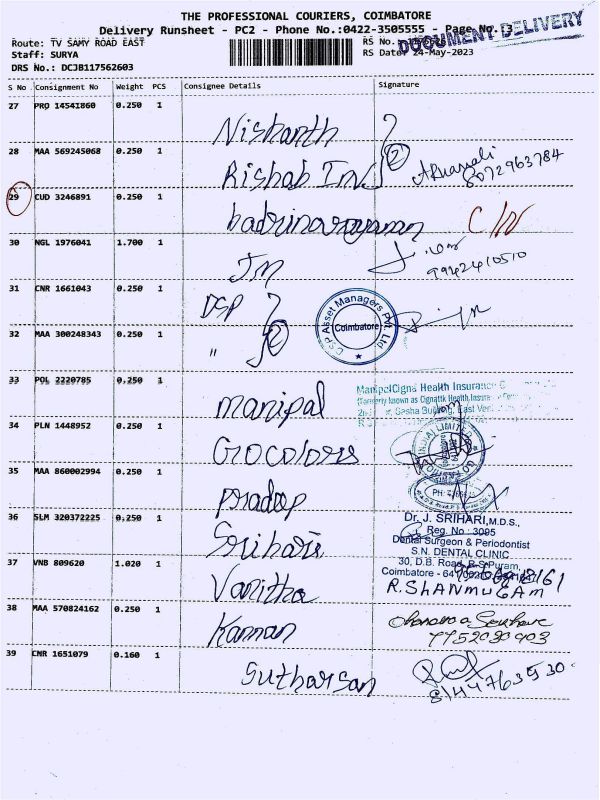 THE PROFESSIONAL COURIERS, COIMBATORE
Delivery Runsheet - PC2 - Phone No.:0422-3505555 - Page No.:3
DOCUMENT DELIVERY
Route: TV SAMY ROAD EAST
RS No.
Staff: SURYA
RS Date: 24-May-2023
DRS No.: DCJB117562603
S No Consignment No Weight PCS Consignee Details Signature
27 PRO 14541860 0.250 1 Nishanth
28 MAA 569245068 0.250 1 Rishab Inv 2
8072963784
29 CUD 3246891 0.250 1 badrinarayanan
30 NGL 1976041 1.700 1 Jm
9942410510
31 CNR 1661043 0.250 1 DSP
DSP Asset Managers Pvt. Ltd. Coimbatore
32 MAA 300248343 0.250 1 " 2
33 POL 2220785 0.250 1 manipal
ManipalCigna Health Insurance
(Formerly known as Cignattk Health Insura
34 PLN 1448952 0.250 1 Gocolors
35 MAA 860002994 0.250 1 pradeep
36 SLM 320372225 0.250 1 Srihari
Dr. J. SRIHARI, M.D.S.,
Reg. No : 3095
Dental Surgeon & Periodontist
S.N. DENTAL CLINIC
30, D.B. Road, R.S.Puram,
Coimbatore - 641 002
37 VNB 809620 1.020 1 Vanitha
R. SHANMUGAM
38 MAA 570824162 0.250 1 Kannan
39 CNR 1651079 0.160 1 Sutharsan